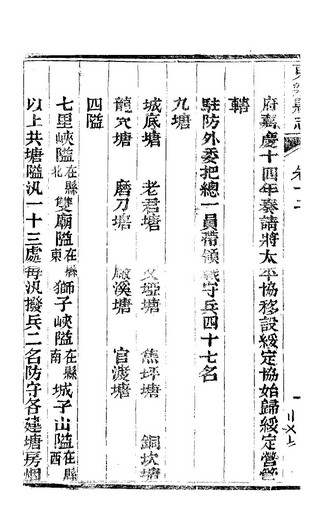 縣志 卷十二
府嘉慶十四年奏請將太平協移設綏定協始歸綏定營管
轄
駐防外委把總一員帶領戰守兵四十七名
九塘
城底塘 老君塘 埡塘 焦坪塘 銅坎塘
龍穴塘 磨刀塘 厰溪塘 官渡塘
四隘
七里峽隘在縣北 雙廟隘在縣東 獅子峽隘在縣南 城子山隘在縣西
以上共塘隘汛一十三處每汛撥兵二名防守各建塘房烟